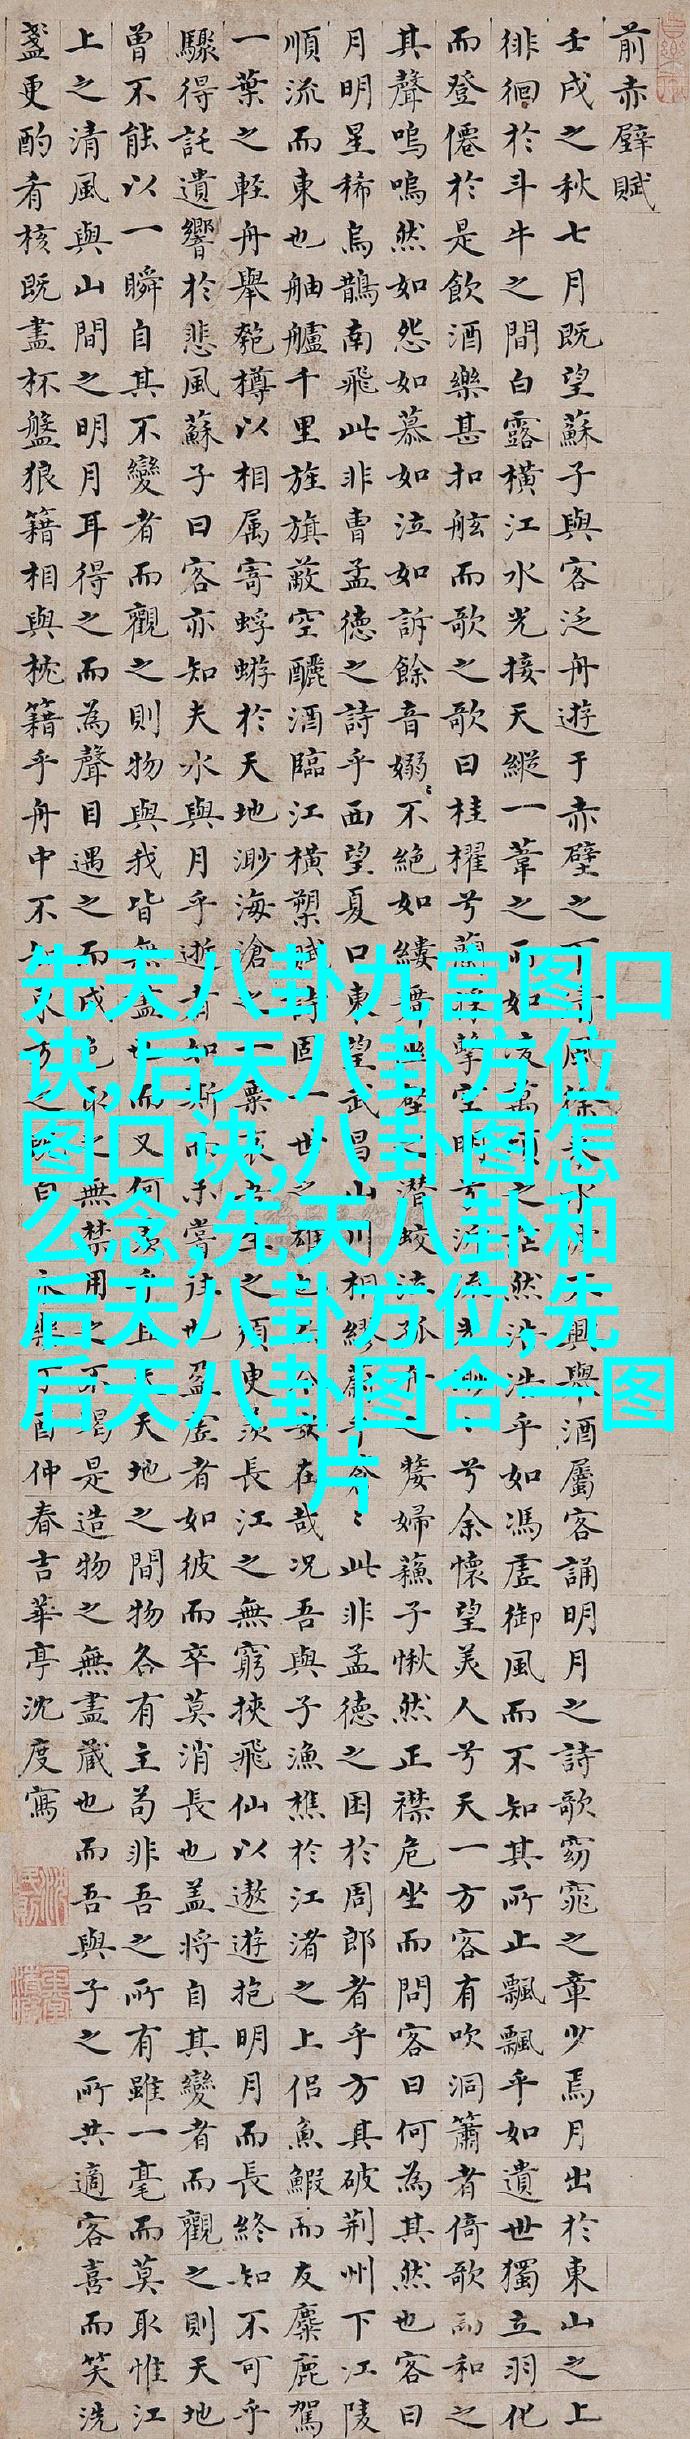 前赤壁賦
壬戌之秋七月既望蘇子與客泛舟遊于赤壁之下清風徐來水波不興舉酒屬客誦明月之詩歌窈窕之章少焉月出於東山之上
徘徊於斗牛之間白露橫江水光接天縱一葦之所如凌萬頃之茫然浩浩乎如馮虛御風而不知其所止飄飄乎如遺世獨立羽化
而登僊於是飲酒樂甚扣舷而歌之歌曰桂櫂兮蘭槳擊空明兮泝流光渺〻兮余懷望美人兮天一方客有吹洞簫者倚歌而和之
其聲嗚嗚然如怨如慕如泣如訴餘音嫋〻不絕如縷舞幽壑之潛蛟泣孤舟之嫠婦蘇子愀然正襟危坐而問客曰何為其然也客曰
月明星稀烏鵲南飛此非曹孟德之詩乎西望夏口東望武昌山川相繆鬱乎蒼〻此非孟德之困於周郎者乎方其破荆州下江陵
順流而東也舳艫千里旌旗蔽空釃酒臨江橫槊賦詩固一世之雄也而今安在哉況吾與子漁樵於江渚之上侶魚鰕而友麋鹿駕
一葉之輕舟舉匏樽以相属寄蜉蝣於天地渺海滄之一粟哀吾生之須臾羨長江之無窮挾飛仙以遨遊抱明月而長終知不可乎
驟得託遺響於悲風蘇子曰客亦知夫水與月乎逝者如斯而未嘗往也盈虛者如彼而卒莫消長也盖將自其變者而觀之則天地
曾不能以一瞬自其不變者而觀之則物與我皆無盡也而又何羨乎且夫天地之間物各有主苟非吾之所有雖一毫而莫取惟江
上之清風與山間之明月耳得之而為聲目遇之而成色取之無禁用之不竭是造物之無盡藏也而吾與子之所共適客喜而笑洗
盞更酌肴核既盡杯盤狼籍相與枕籍乎舟中不知東方之既白永樂丁酉仲春吉華亭沈度寫
先天八卦九宫图口
诀,后天八卦方位
图口诀,八卦图怎
么念,先天八卦和
后天八卦方位,先
后天八卦图合一图
片